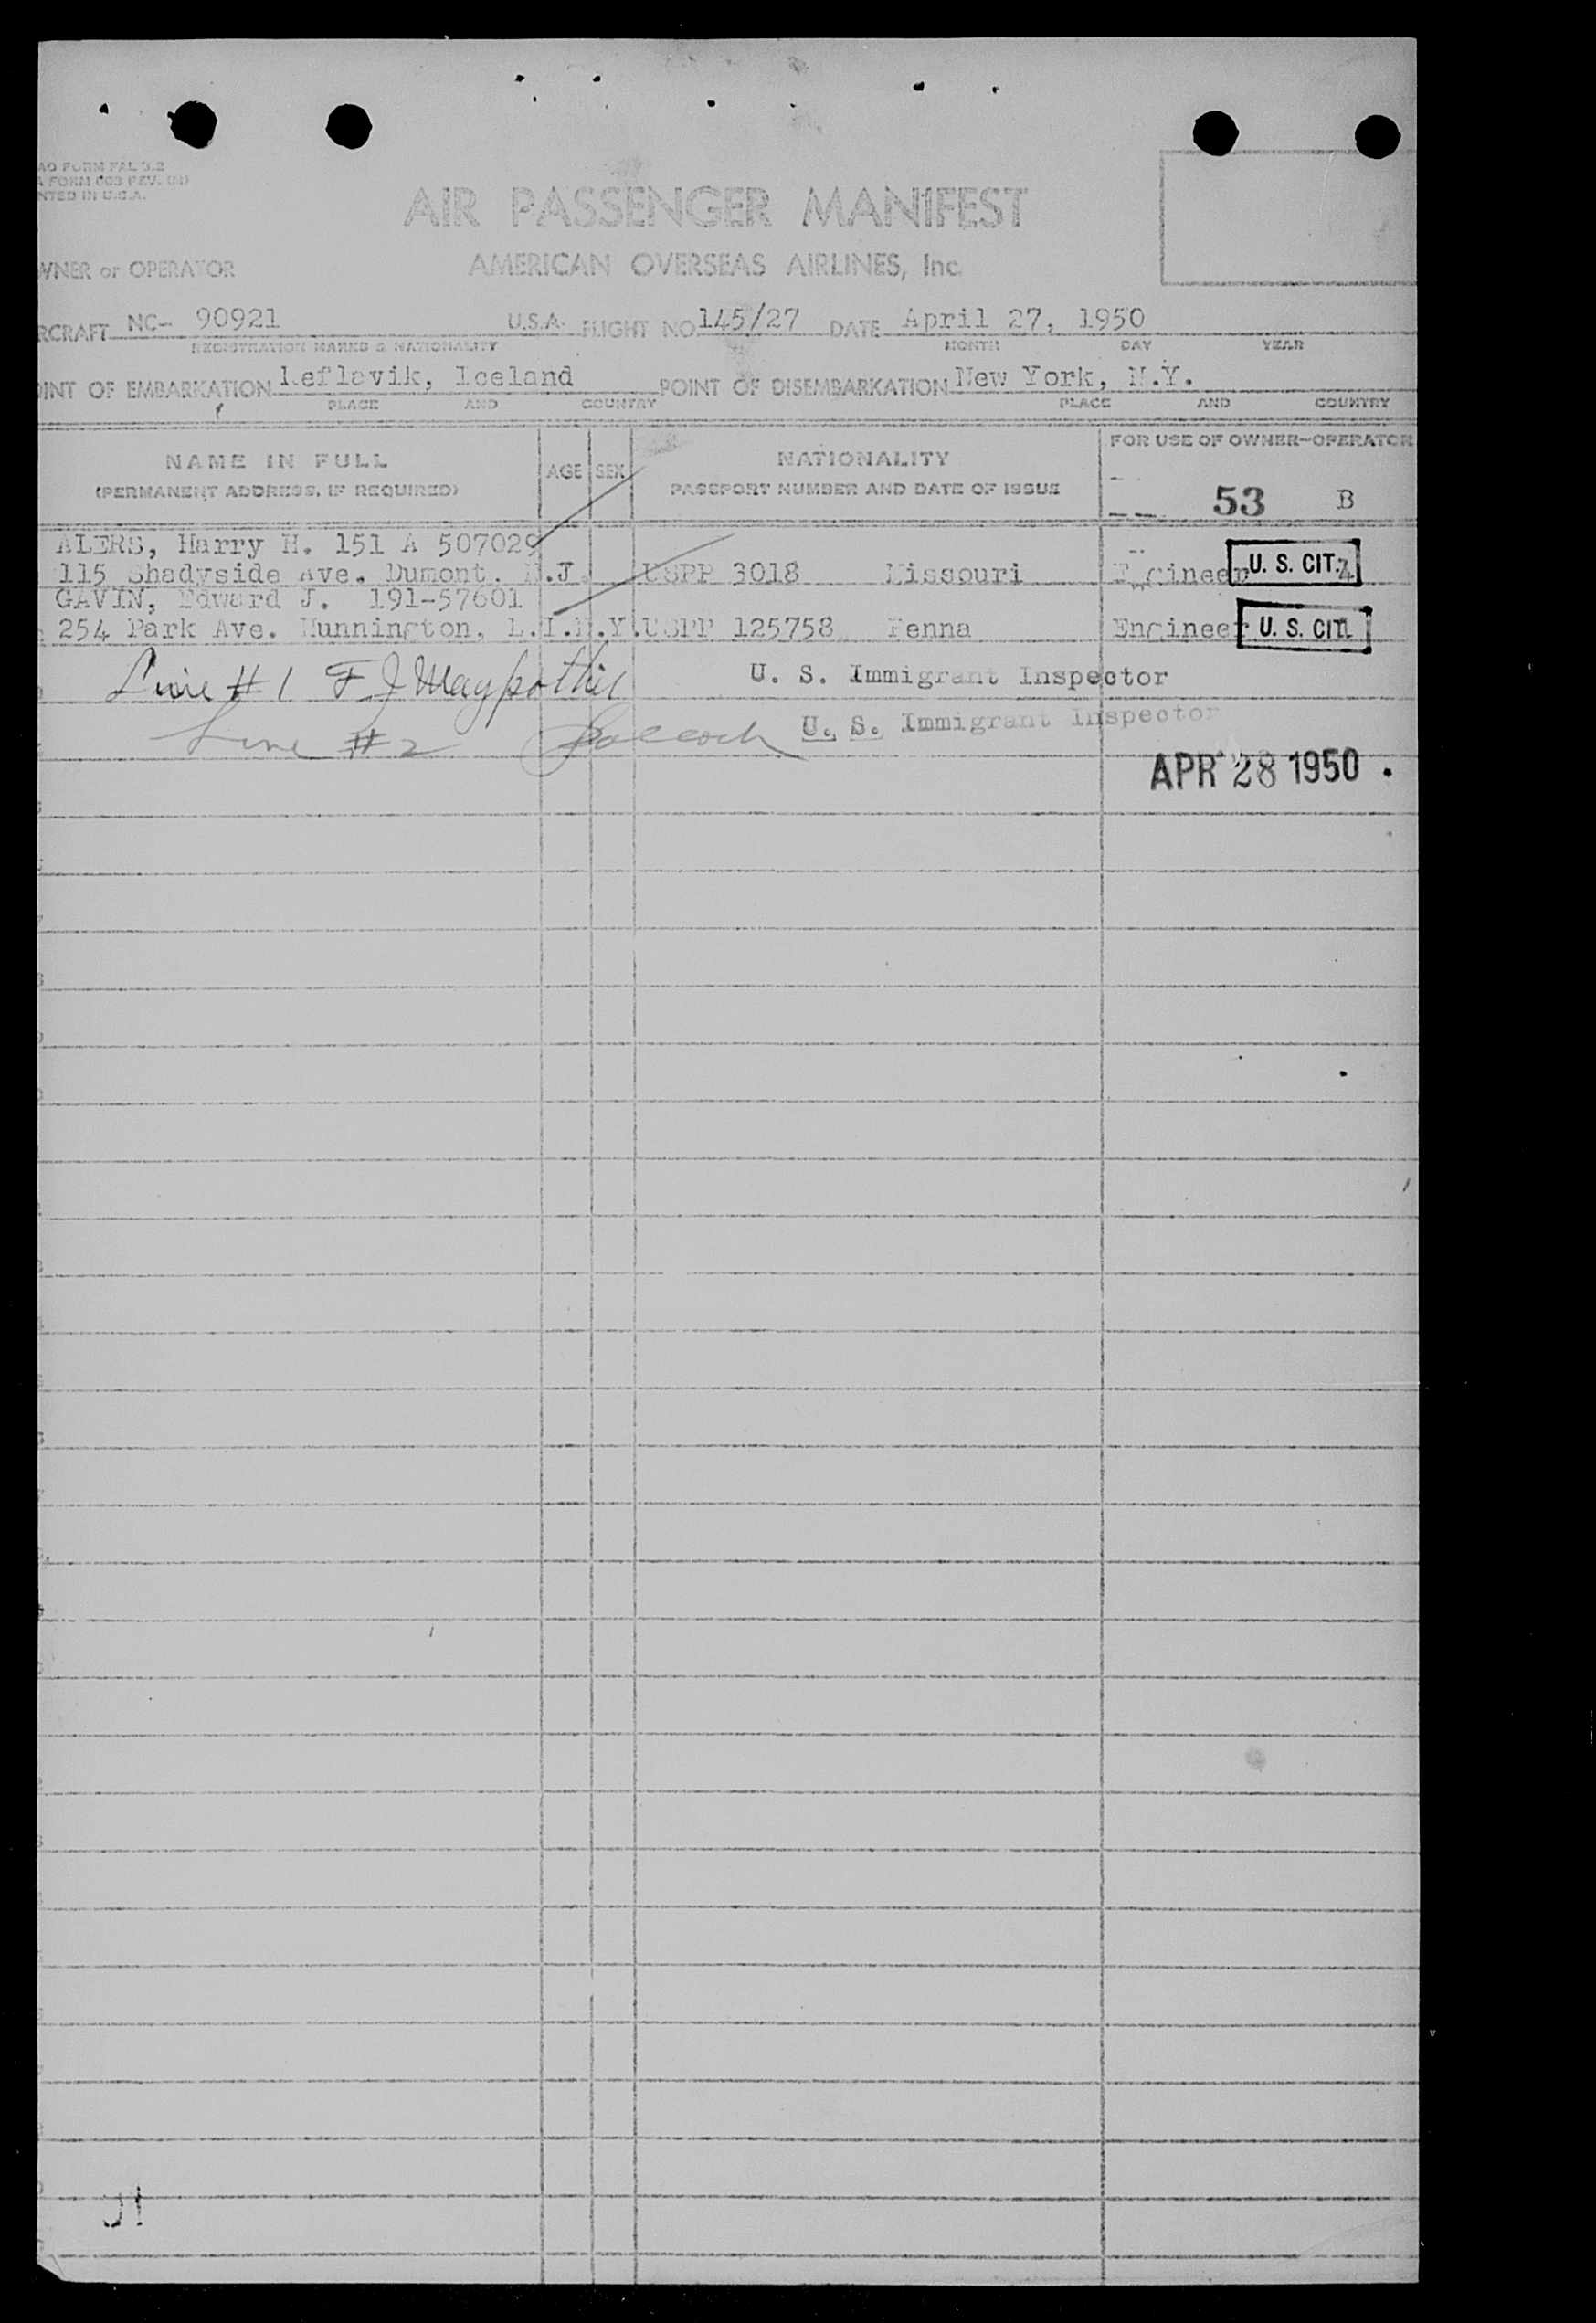 AO FORM FAL 3.2
FORM 003 REV.
NTED IN U.S.A.
AIR PASSENGER MANIFEST
WNER or OPERATOR AMERICAN OVERSEAS AIRLINES, Inc.
RCRAFT NC- 90921 U.S.A. FLIGHT NO. 145/27 DATE April 27, 1950
REGISTRATION MARKS & NATIONALITY MONTH DAY YEAR
OINT OF EMBARKATION Keflavik, Iceland POINT OF DISEMBARKATION New York, N.Y.
PLACE AND COUNTRY PLACE AND COUNTRY
NAME IN FULL AGE SEX NATIONALITY FOR USE OF OWNER-OPERATOR
(PERMANENT ADDRESS, IF REQUIRED) PASSPORT NUMBER AND DATE OF ISSUE
53 B
ALERS, Harry H. 151 A 507029
115 Shadyside Ave. Dumont, N.J. USPP 3018 Missouri Engineer U. S. CIT.
GAVIN, Edward J. 191-57601
254 Park Ave. Hunnington, L.I.N.Y. USPP 125758 Penna Engineer U. S. CIT.
Line #1 F J U. S. Immigrant Inspector
Line #2 U. S. Immigrant Inspector
APR 28 1950